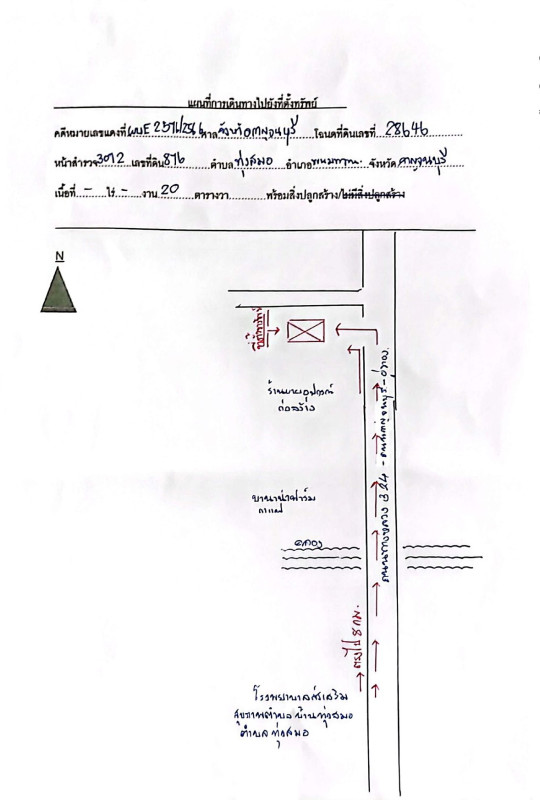 แผนที่การเดินทางไปยังที่ตั้งทรัพย์
คดีหมายเลขแดงที่ ผบE 2571/2566 ศาล จังหวัดกาญจนบุรี โฉนดที่ดินเลขที่ 28646
หน้าสำรวจ 3012 เลขที่ดิน 876 ตำบล ทุ่งสมอ อำเภอ พนมทวน จังหวัด กาญจนบุรี
เนื้อที่ - ไร่ - งาน 20 ตารางวา พร้อมสิ่งปลูกสร้าง/ไม่มีสิ่งปลูกสร้าง
N
ที่ตั้งทรัพย์
ร้านขายอุปกรณ์
ก่อสร้าง
บานาน่าฟาร์ม
กาแฟ
คลอง
ถนนทางหลวง 324 - ถนนกาญจนบุรี-อู่ทอง
ตรงไป 8 กม.
โรงพยาบาลส่งเสริม
สุขภาพตำบลบ้านทุ่งสมอ
ตำบลทุ่งสมอ